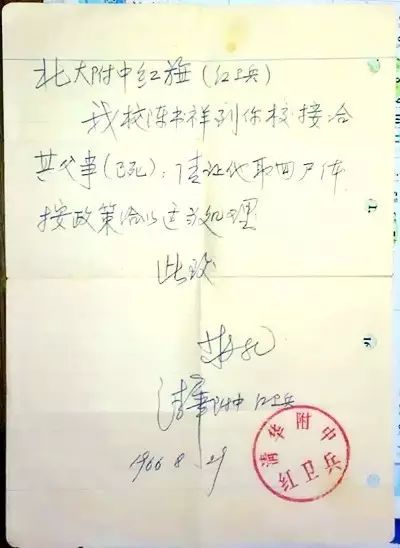 北大附中红旗(红卫兵)
我校陈书祥到你校接合
其父事(已死),请让他取回尸体
按政策给以适当处理
此致
敬礼
清华附中 红卫兵
1966 8 29
清华附中
红卫兵